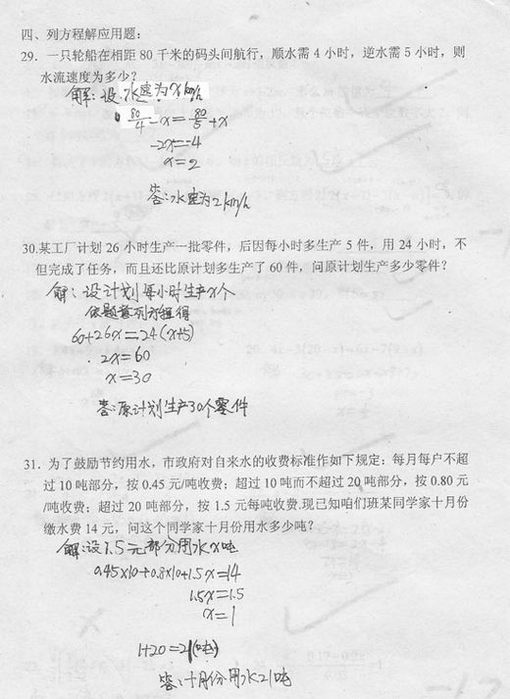 四、列方程解应用题：
29．一只轮船在相距 80 千米的码头间航行，顺水需 4 小时，逆水需 5 小时，则
水流速度为多少？
解：设水速为x km/h
80/4－x＝80/5＋x
－2x＝－4
x＝2
答：水速为2km/h
30.某工厂计划 26 小时生产一批零件，后因每小时多生产 5 件，用 24 小时，不
但完成了任务，而且还比原计划多生产了 60 件，问原计划生产多少零件？
解：设计划每小时生产x个
依题意列方程得
60+26x＝24(x+5)
2x＝60
x＝30
答：原计划生产30个零件
31．为了鼓励节约用水，市政府对自来水的收费标准作如下规定：每月每户不超
过 10 吨部分，按 0.45 元/吨收费；超过 10 吨而不超过 20 吨部分，按 0.80 元
/吨收费；超过 20 吨部分，按 1.5 元每吨收费.现已知咱们班某同学家十月份
缴水费 14 元，问这个同学家十月份用水多少吨？
解：设1.5元部分用水x吨
0.45×10+0.8×10+1.5x＝14
1.5x＝1.5
x＝1
1+20＝21(吨)
答：十月份用水21吨